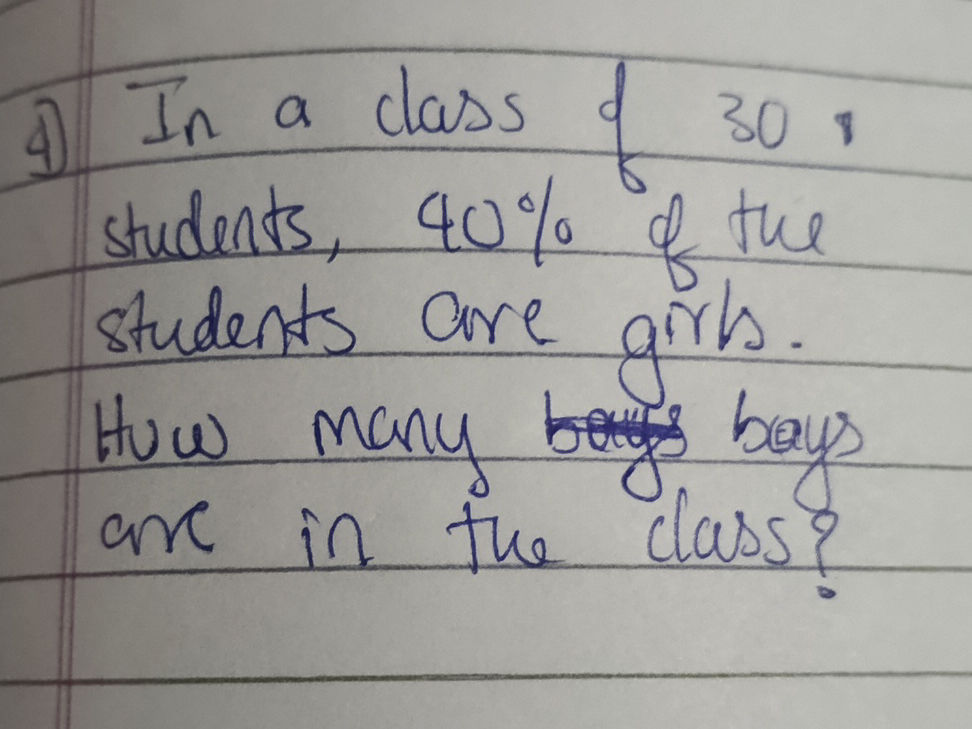 4) In a class of 30
students, 40% of the
students are girls.
How many boys
are in the class?